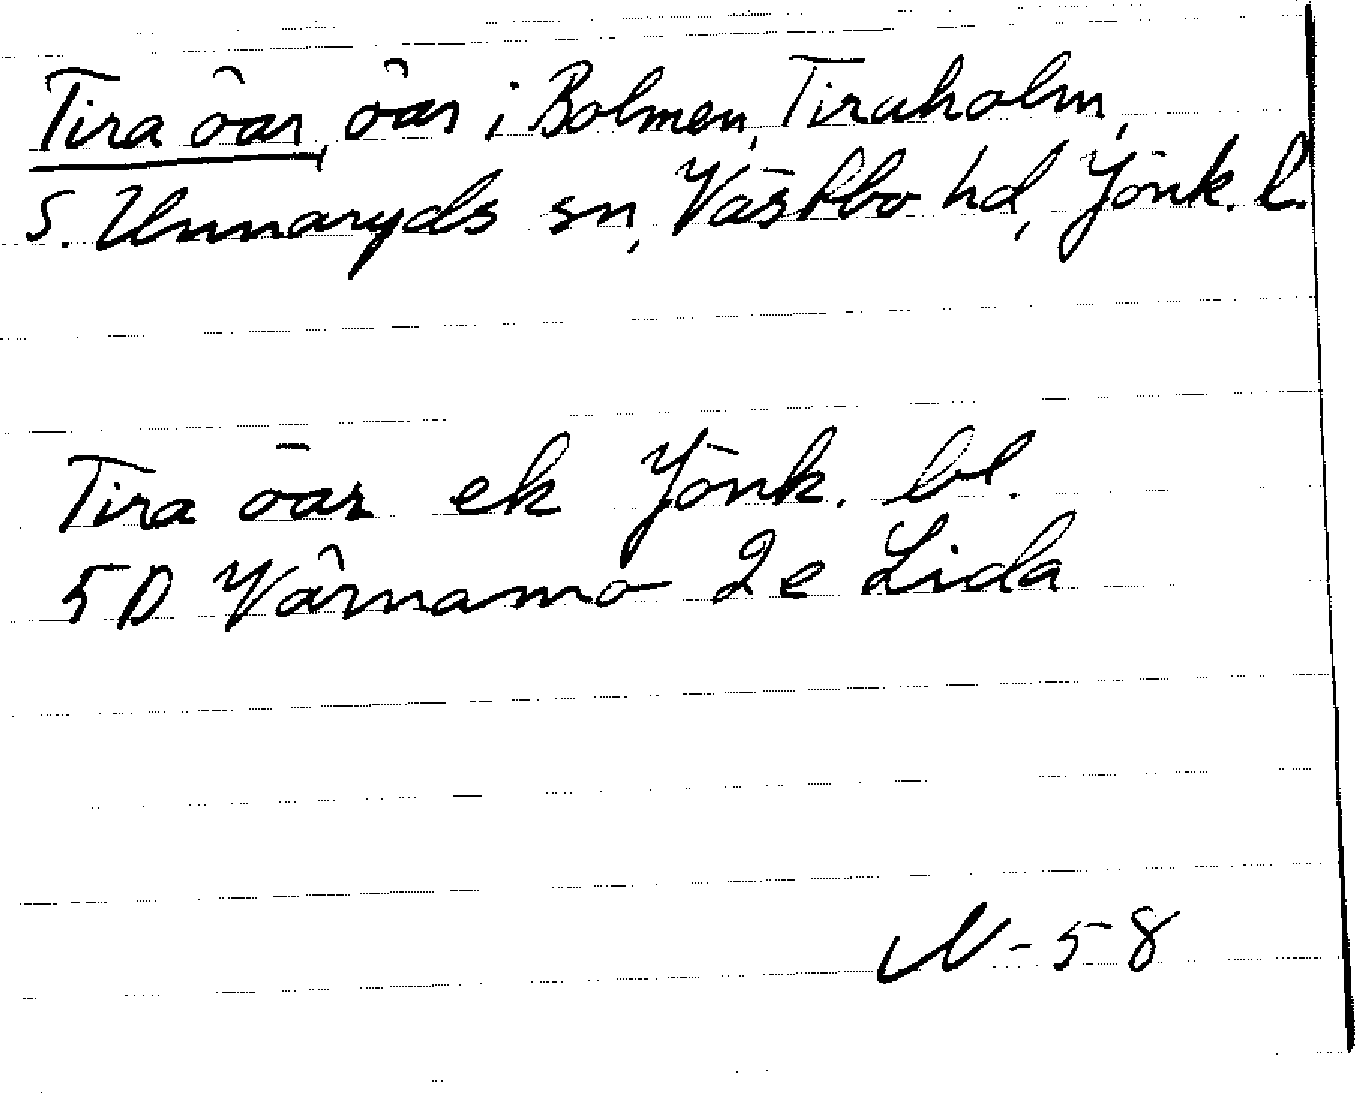 Tira öar, öar i Bolmen, Tiraholm,
S. Unnaryds sn, Västbo hd, Jönk. l.
Tira öar ek Jönk. bl.
5D Värnamo 2e Lida
N-58